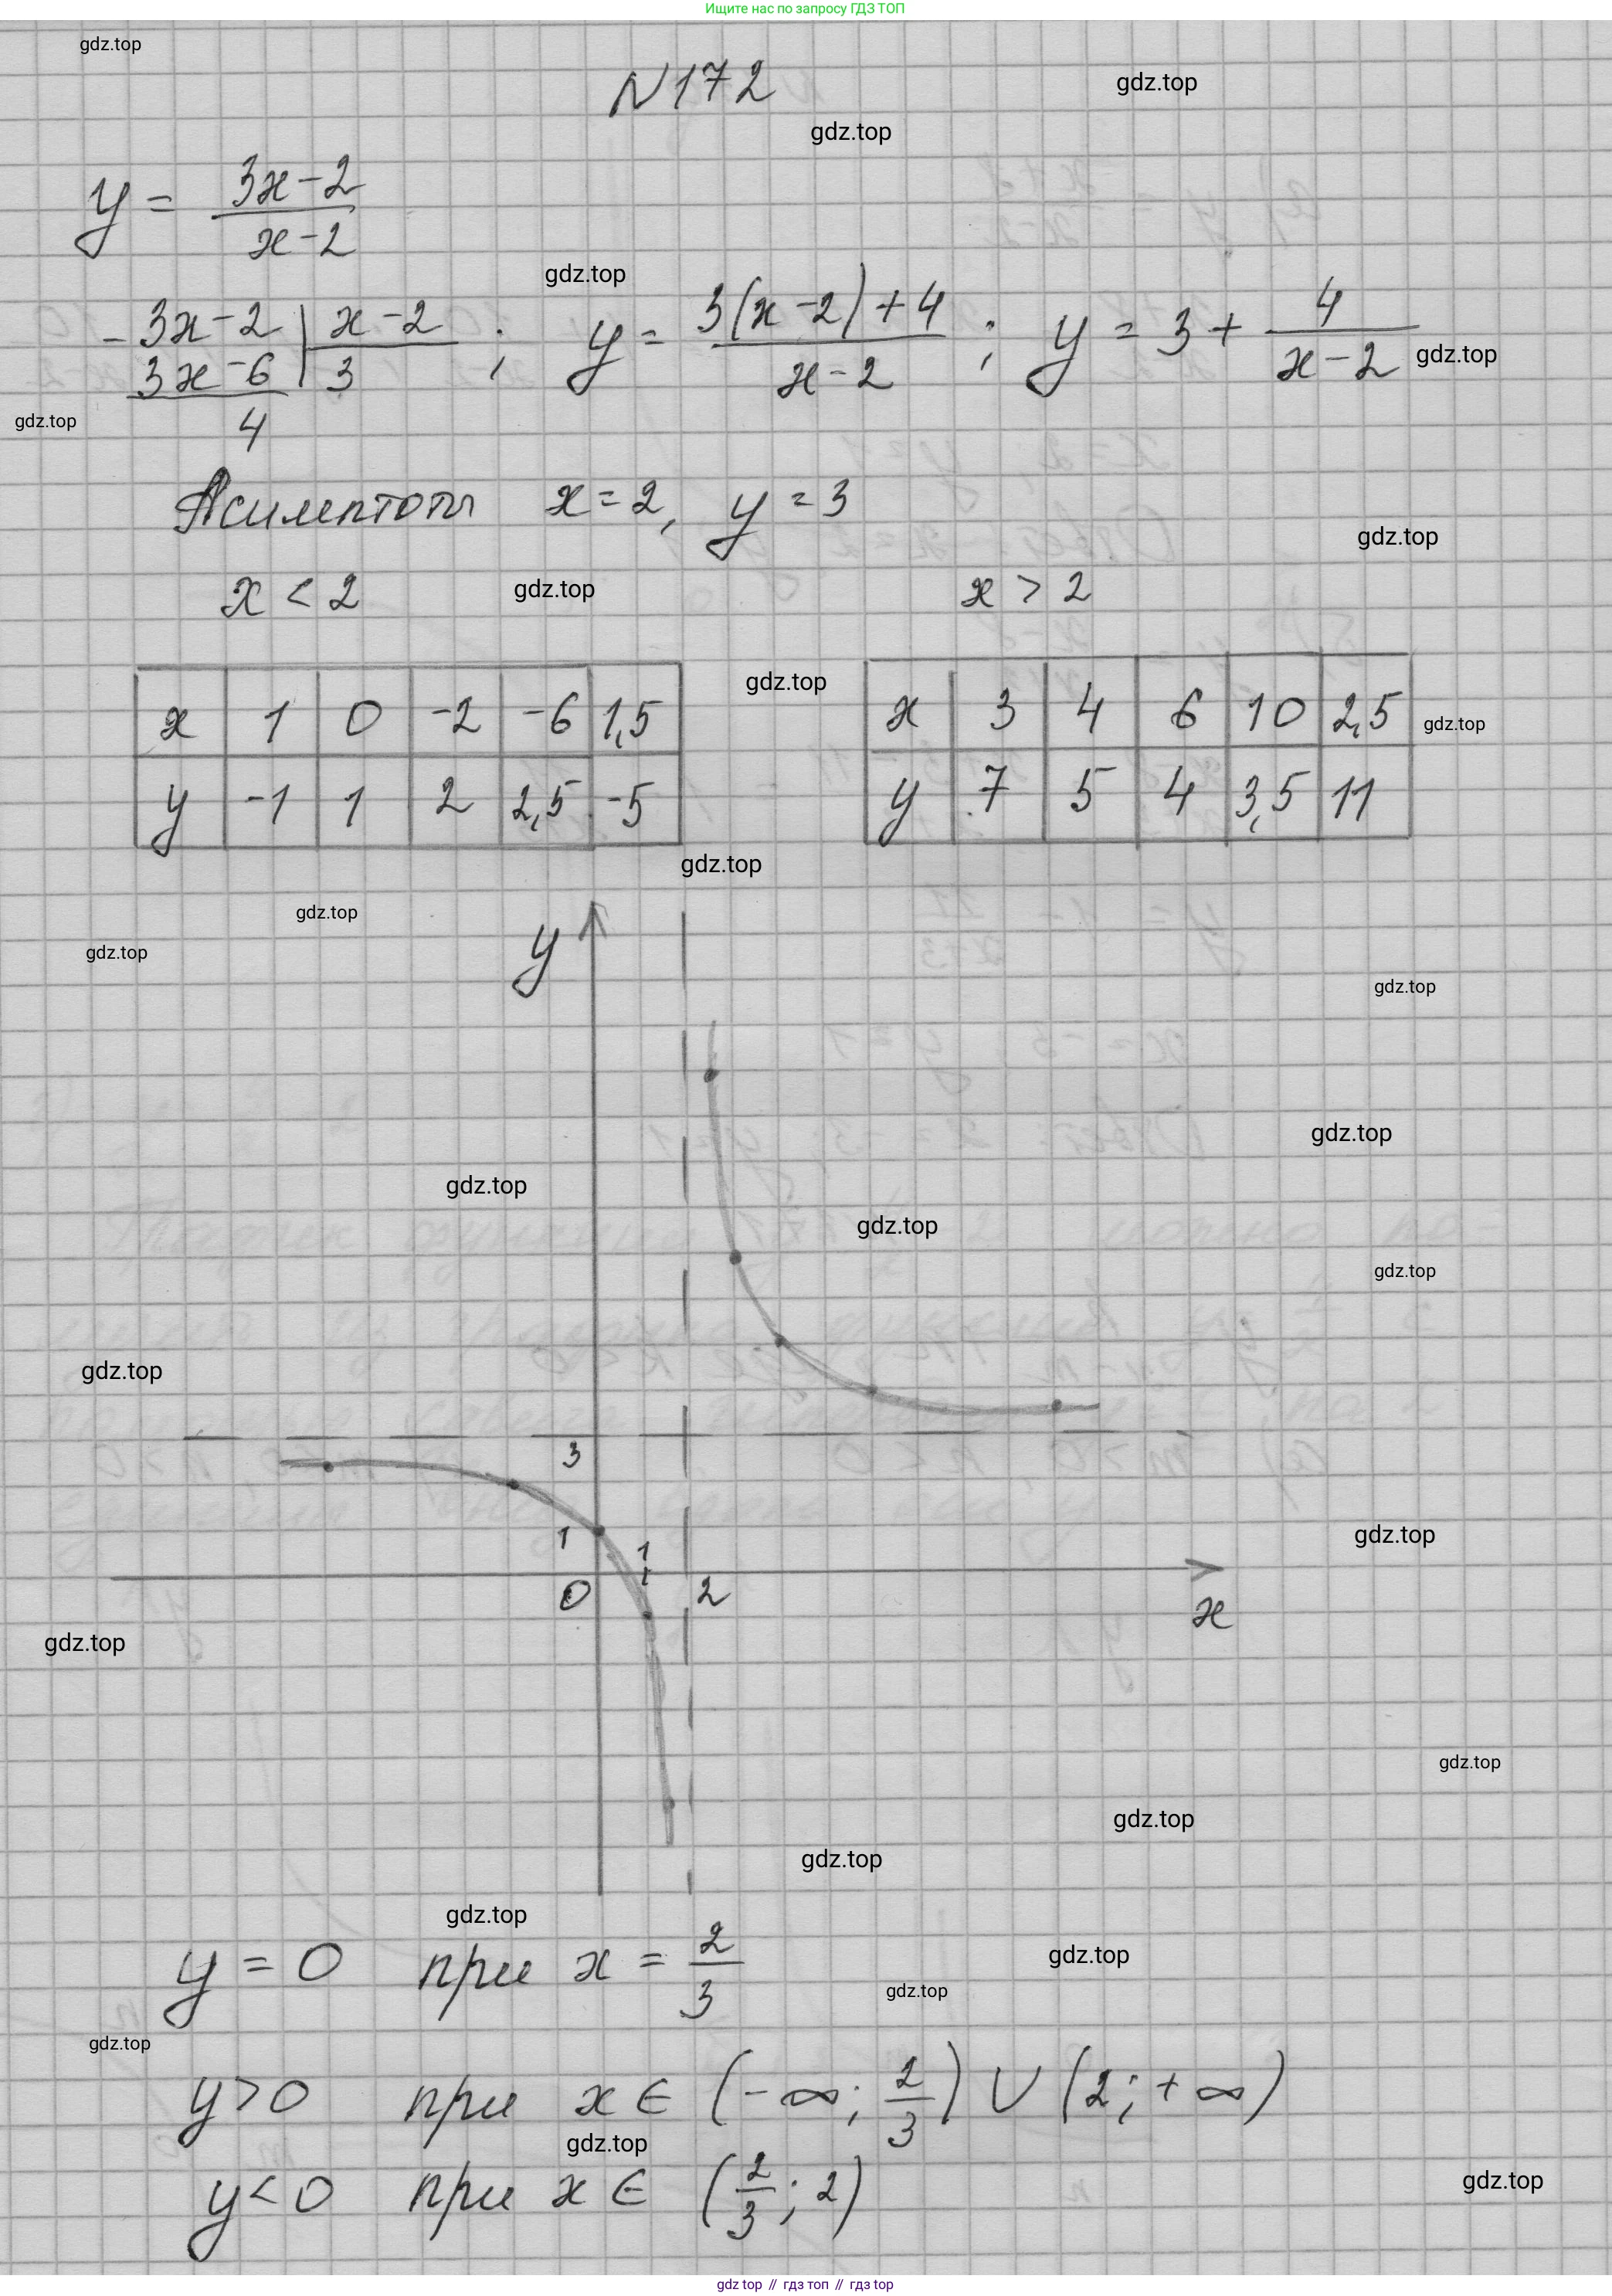 Ищите нас по запросу ГДЗ ТОП
gdz.top
N172
gdz.top
gdz.top
y = (3x-2)/(x-2)
gdz.top
- 3x-2 | x-2
3x-6 | 3
4
; y = (3(x-2)+4)/(x-2) ; y = 3 + 4/(x-2)
gdz.top
gdz.top
Асимптоты x = 2, y = 3
gdz.top
x < 2 gdz.top x > 2
gdz.top
x 1 0 -2 -6 1,5
y -1 1 2 2,5 -5
x 3 4 6 10 2,5
y 7 5 4 3,5 11
gdz.top
gdz.top
gdz.top
gdz.top
y
gdz.top
gdz.top
gdz.top
gdz.top
gdz.top
gdz.top
3
1
1
gdz.top
0
2
x
gdz.top
gdz.top
gdz.top
gdz.top
gdz.top
y = 0 при x = 2/3
gdz.top
gdz.top
gdz.top
y > 0 при x ∈ (-∞; 2/3) ∪ (2; +∞)
gdz.top
y < 0 при x ∈ (2/3; 2)
gdz.top
gdz top // гдз топ // gdz top